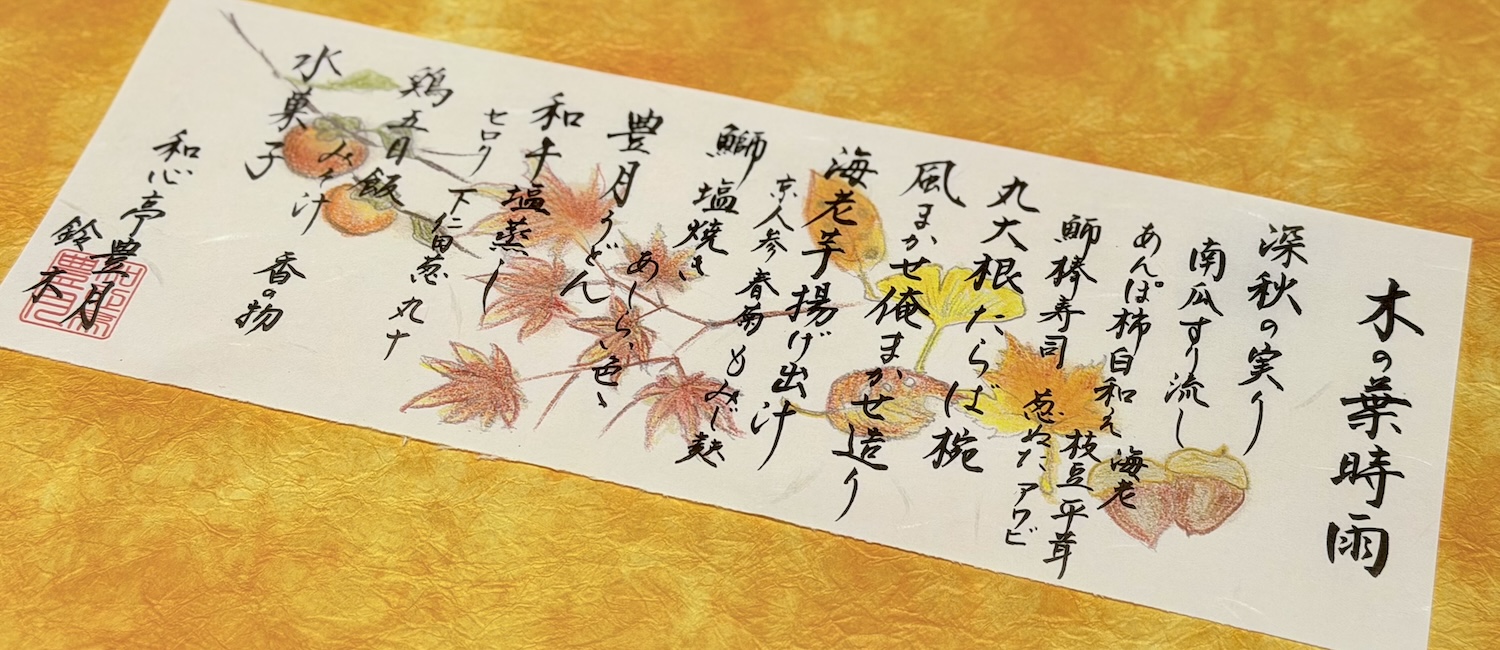 木の葉時雨
深秋の実り
南瓜すり流し
あんぽ柿白和え 海老
鰤棒寿司 枝豆平茸
葱ぬた アワビ
丸大根 たらば椀
風まかせ俺まかせ造り
海老芋揚げ出汁
京人参 春菊 もみじ麩
鰤塩焼き
あしらい色々
豊月うどん
和牛塩蒸し
セロリ 下仁田葱 丸十
鶏五目飯
みそ汁 香の物
水菓子
和心亭豊月
鈴木